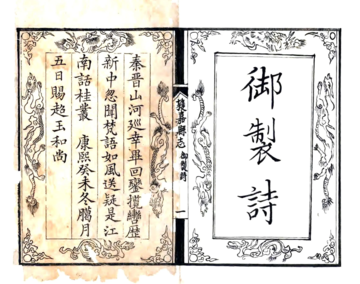 御製詩
秦晉山河巡幸畢回鑾攬轡歷
新中忽聞梵語如風送疑是江
南話桂叢　康熙癸未冬臘月
五日賜超玉和尚
獲嘉縣志
御製詩
一